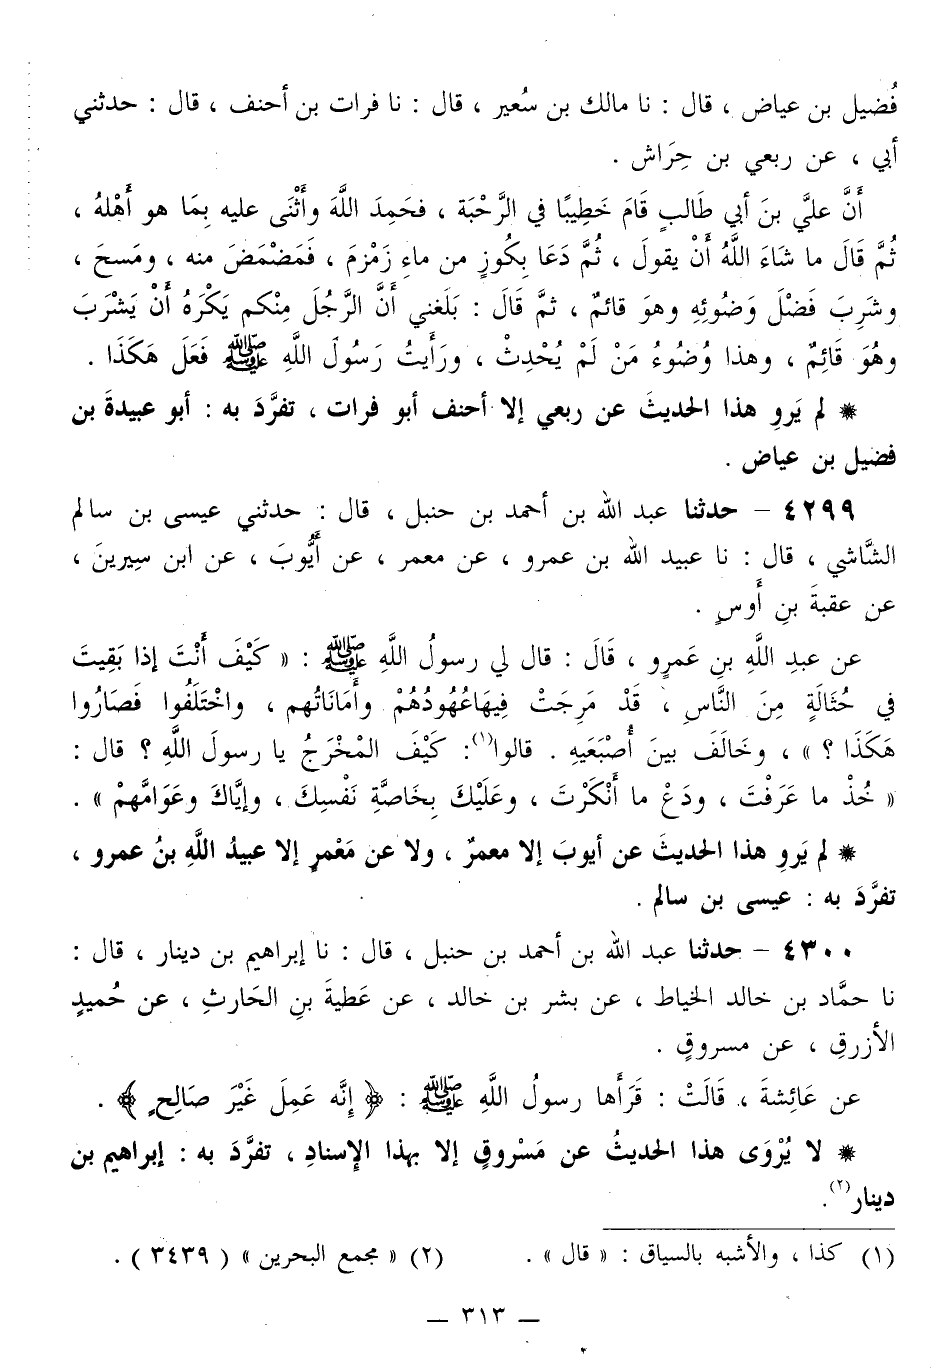 فُضيل بن عياض ، قال : نا مالك بن سُعير ، قال : نا فرات بن أحنف ، قال : حدثني
أبي ، عن ربعي بن حِرَاش .
أَنَّ عليَّ بنَ أبي طَالبٍ قَامَ خَطِيبًا في الرَّحْبَة ، فحَمِدَ اللَّهَ وأَثْنَى عليه بِمَا هو أَهْلهُ ،
ثُمَّ قَالَ ما شَاءَ اللَّهُ أَنْ يقولَ ، ثُمَّ دَعَا بِكُوزٍ من ماءِ زَمْزمَ ، فَمَضْمَضَ منه ، ومَسحَ ،
وشَرِبَ فَضْلَ وَضُوئِهِ وهوَ قائمٌ ، ثمَّ قَالَ : بَلَغني أَنَّ الرَّجُلَ مِنْكم يَكْرَهُ أَنْ يَشْرَبَ
وهُوَ قَائِمٌ ، وهذا وُضُوءُ مَنْ لَمْ يُحْدِثْ ، ورَأَيتُ رَسُولَ اللَّهِ ﷺ فَعَلَ هَكَذَا .
* لم يَروِ هذا الحديثَ عن ربعي إلا أحنف أبو فرات ، تفرَّدَ به : أبو عبيدةَ بن
فضيل بن عياض .
٤٢٩٩ – حدثنا عبد الله بن أحمد بن حنبل ، قال : حدثني عيسى بن سالم
الشَّاشي ، قال : نا عبيد الله بن عمرو ، عن معمر ، عن أَيُّوبَ ، عن ابن سِيرينَ ،
عن عقبةَ بنِ أَوسٍ .
عن عبدِ اللَّهِ بنِ عَمرٍو ، قَالَ : قال لي رسولُ اللَّهِ ﷺ : « كَيْفَ أَنْتَ إذا بَقِيتَ
في حُثَالَةٍ مِنَ النَّاسِ ، قَدْ مَرِجَتْ فِيهَاعُهُودُهُمْ وأَمَانَاتُهم ، واخْتَلَفُوا فَصَارُوا
هَكَذَا ؟ » ، وخَالَفَ بينَ أُصْبَعَيهِ . قالوا(١): كَيْفَ المْخْرَجُ يا رسولَ اللَّهِ ؟ قال :
« خُذْ ما عَرَفتَ ، ودَعْ ما أَنْكَرْتَ ، وعَلَيْكَ بِخَاصَّةِ نَفْسِكَ ، وإيَّاكَ وعَوَامَّهمْ » .
* لم يَروِ هذا الحديثَ عن أيوبَ إلا معمرٌ ، ولا عن مَعْمرٍ إلا عبيدُ اللَّهِ بنُ عمرو ،
تفرَّدَ به : عيسى بن سالم .
٤٣٠٠ – حدثنا عبد الله بن أحمد بن حنبل ، قال : نا إبراهيم بن دينار ، قال :
نا حمَّاد بن خالد الخياط ، عن بشر بن خالد ، عن عَطيةَ بنِ الحَارثِ ، عن حُميدٍ
الأزرقِ ، عن مسروقٍ .
عن عَائِشةَ ، قَالَتْ : قَرَأَها رسولُ اللَّهِ ﷺ : ﴿ إِنَّه عَمِلَ غَيْرَ صَالِحٍ ﴾ .
* لا يُرْوَى هذا الحديثُ عن مَسْروقٍ إلا بهذا الإسنادِ ، تفرَّدَ به : إبراهيم بن
دينار(٢).
(١) كذا ، والأشبه بالسياق : « قال » .
(٢) « مجمع البحرين » ( ٣٤٣٩ ) .
— ٣١٣ —